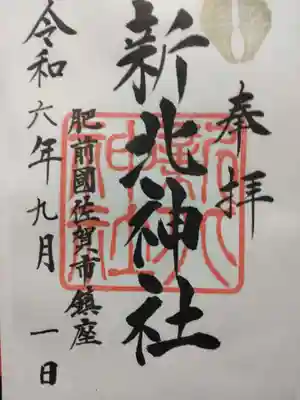 奉拝
新北神社
肥前國佐賀市鎮座
令和六年九月一日
新北
神社